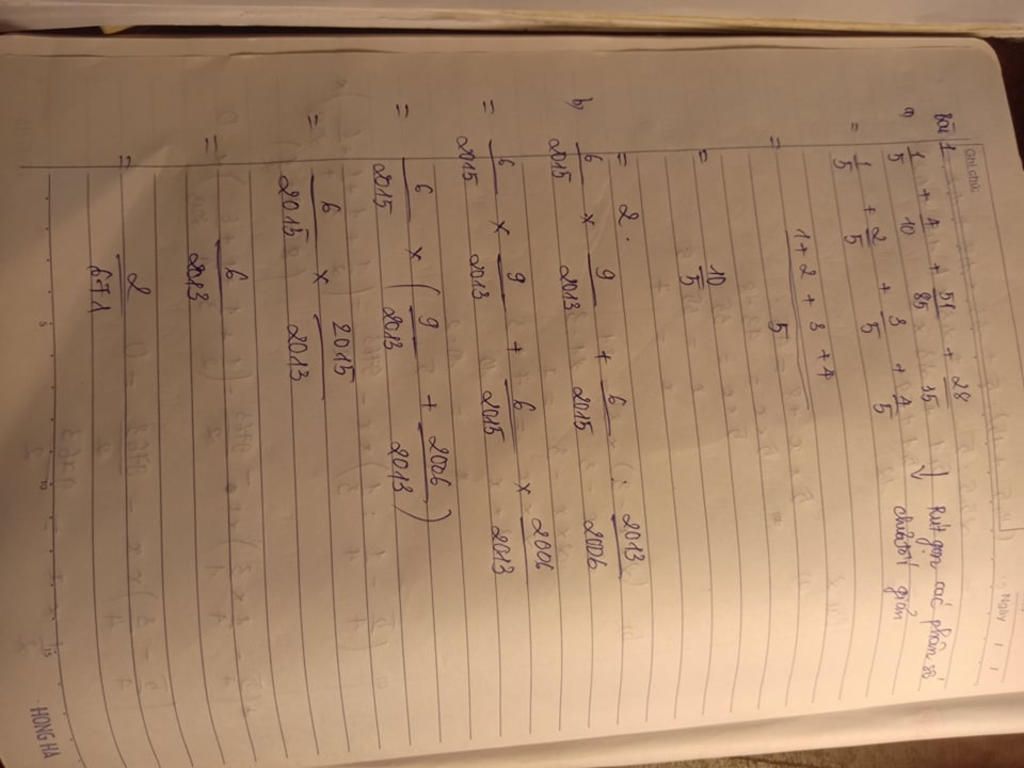 Ghi chú:
Ngày / /
Bài 1
a) 1/5 + 4/10 + 51/85 + 28/35 ↓ Rút gọn các phân số
chưa tối giản
= 1/5 + 2/5 + 3/5 + 4/5
= (1 + 2 + 3 + 4)/5
= 10/5
= 2.
b) 6/2015 x 9/2013 + 6/2015 : 2013/2006
= 6/2015 x 9/2013 + 6/2015 x 2006/2013
= 6/2015 x (9/2013 + 2006/2013)
= 6/2015 x 2015/2013
= 6/2013
= 2/671
5 10 15
HONG HA